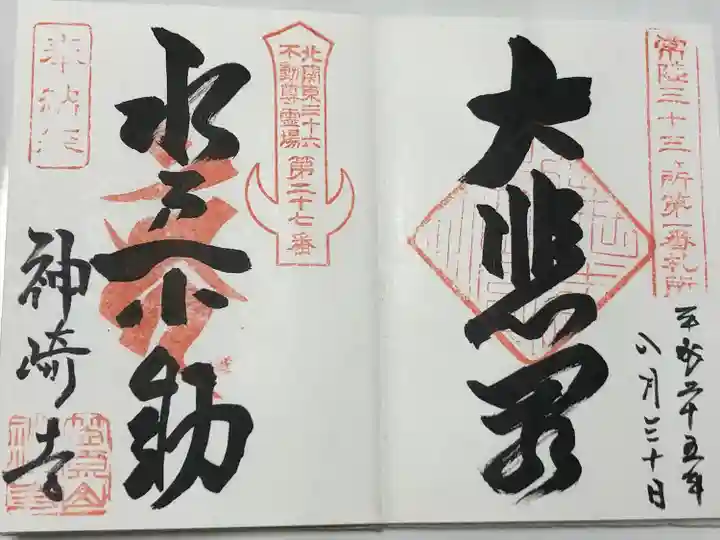 常陸三十三ヶ所第一番札所
大悲閣
平成二十五年
八月三十日
北関東三十六
不動尊霊場
第二十七番
水戸不動
奉納経
神崎寺